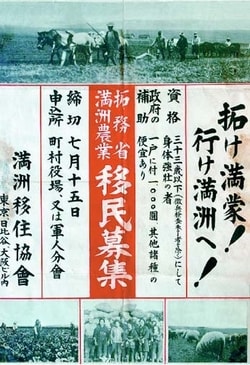 拓け満蒙!
行け満洲へ!
資格
三十三歳以下(徴兵検査未了者を除く)にして
身体強壮の者
政府の補助
一戸に付一、〇〇〇圓其他諸種の
便宜あり
拓務省
満洲農業
移民募集
締切 七月十五日
申込所 町村役場、又は軍人分会
満洲移住協會
東京・日比谷・大阪ビル内